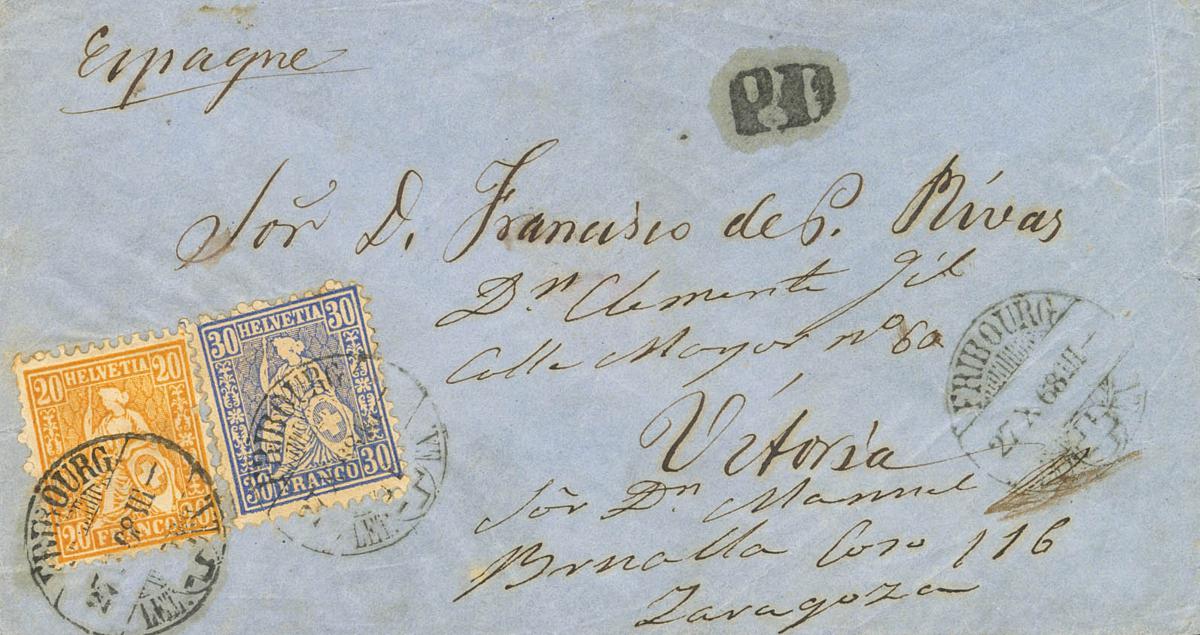 Espagne
P.D.
Sor̃ D. Francisco de P. Rivas
Dn Clemente Gil
Calle Mayor no 60
Vitoria
Sor̃ Dn Manuel
Coso 116
Zaragoza
20 HELVETIA 20
20 FRANCO 20
30 HELVETIA 30
30 FRANCO 30
FRIBOURG
27 X 68 III
LET.
FRIBOURG
LET.
FRIBOURG
27 X 68 III